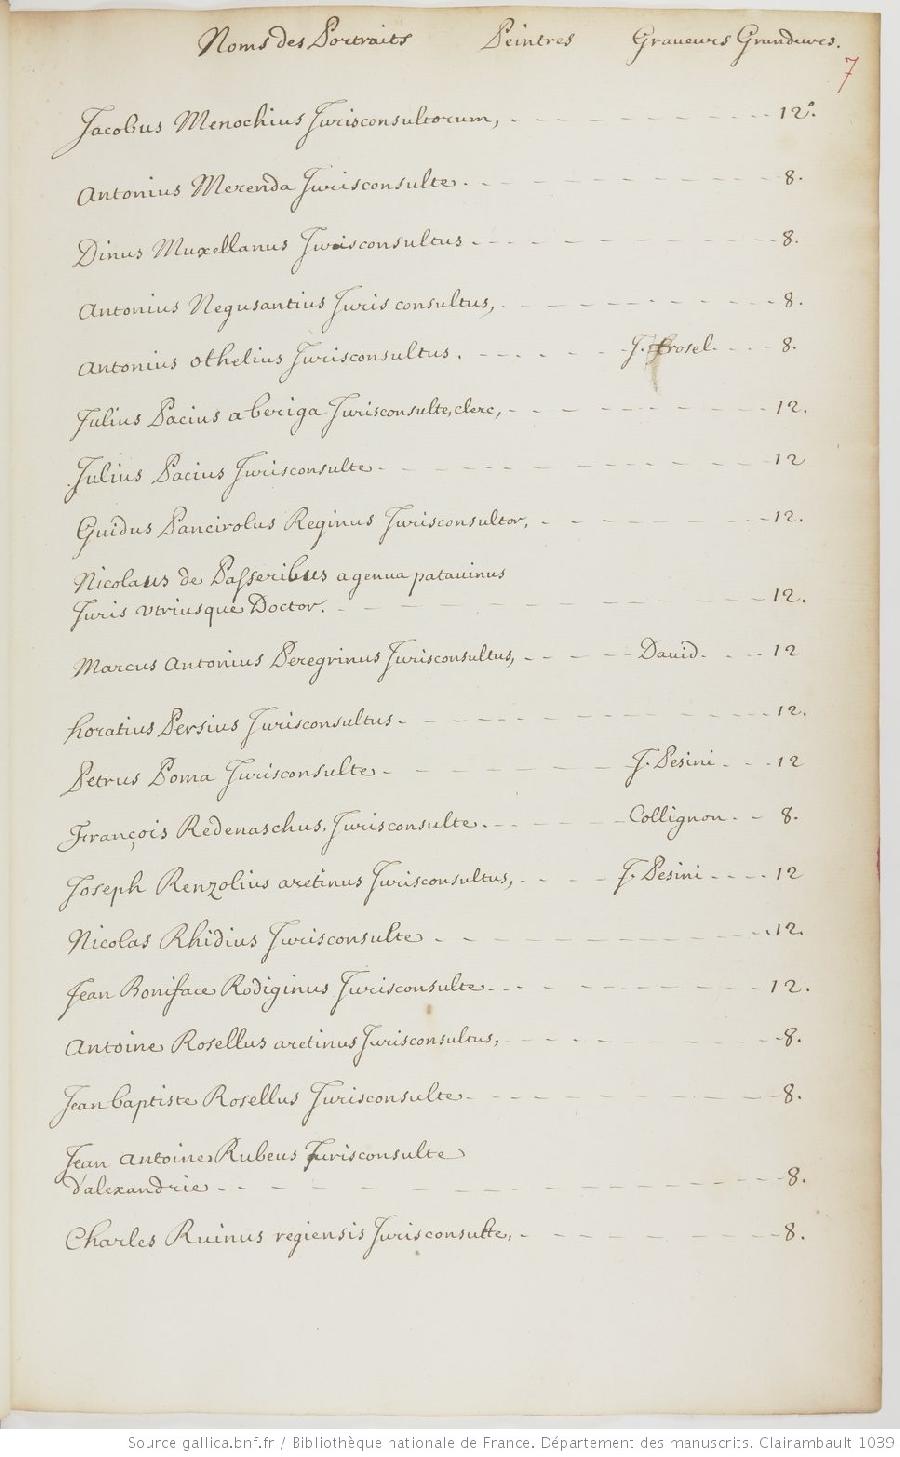 Noms des Portraits Peintres Graveurs Grandeurs.
7
Jacobus Menochius Jurisconsultorum, 12.
Antonius Merenda Jurisconsulte. 8.
Dinus Muxellanus Jurisconsultus 8.
Antonius Negusantius Juris consultus, 8.
Antonius Othelius Jurisconsultus. J. Frosel. 8.
Julius Pacius a beriga Jurisconsulte, clerc, 12.
Julius Pacius Jurisconsulte 12
Guidus Pancirolus Reginus Jurisconsultor, 12.
Nicolaus de Passeribus a genua patauinus
Juris vtriusque Doctor. 12.
Marcus Antonius Peregrinus Jurisconsultus, Dauid. 12
horatius Persius Jurisconsultus 12.
Petrus Poma Jurisconsulte J. Pesini 12
François Redenaschus, Jurisconsulte. Collignon 8.
Joseph Renzolius aretinus Jurisconsultus, J. Pesini 12
Nicolas Rhidius Jurisconsulte 12.
Jean Boniface Rodiginus Jurisconsulte 12.
Antoine Rosellus aretinus Jurisconsultus, 8.
Jean baptiste Rosellus Jurisconsulte 8.
Jean Antoine Rubeus Jurisconsulte
d'alexandrie 8.
Charles Ruinus regiensis Jurisconsulte, 8.
Source gallica.bnf.fr / Bibliothèque nationale de France. Département des manuscrits. Clairambault 1039